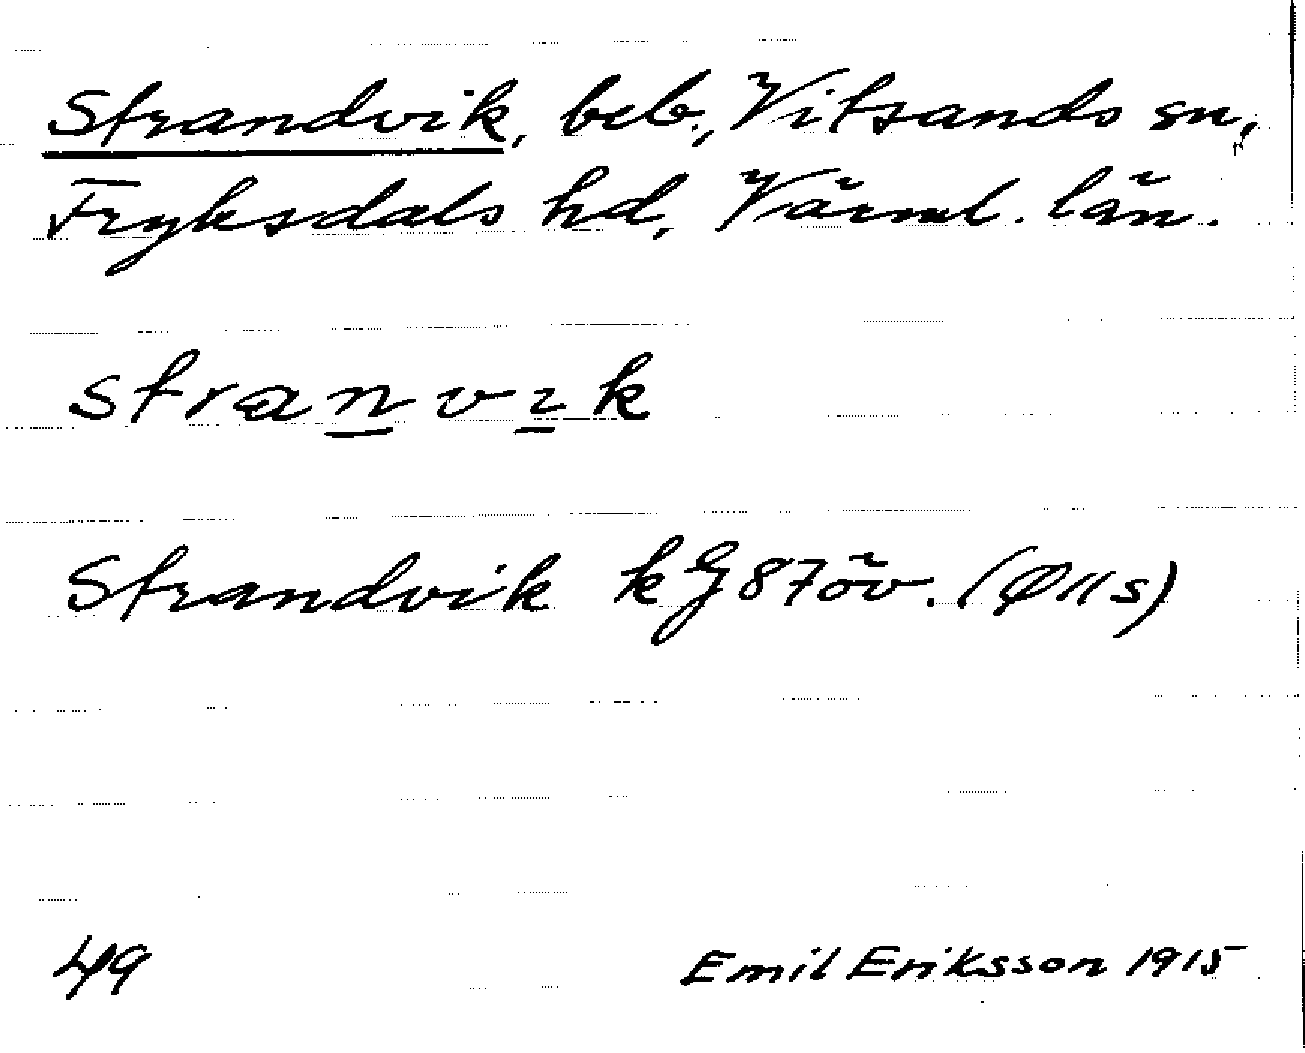 Strandvik, beb., Vitsands sn,
Fryksdals hd, Värml. län.
stranvık
Strandvik kG 87öv. (Ø11s)
49 Emil Eriksson 1915